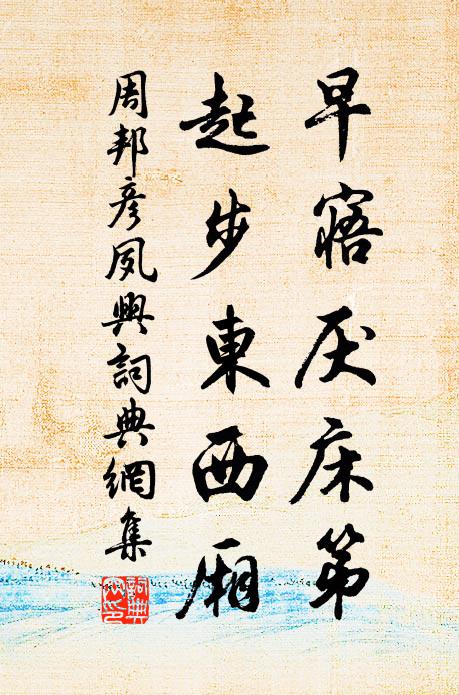 早寤厌床第
起步東西厢
周邦彥夙興詞典網集